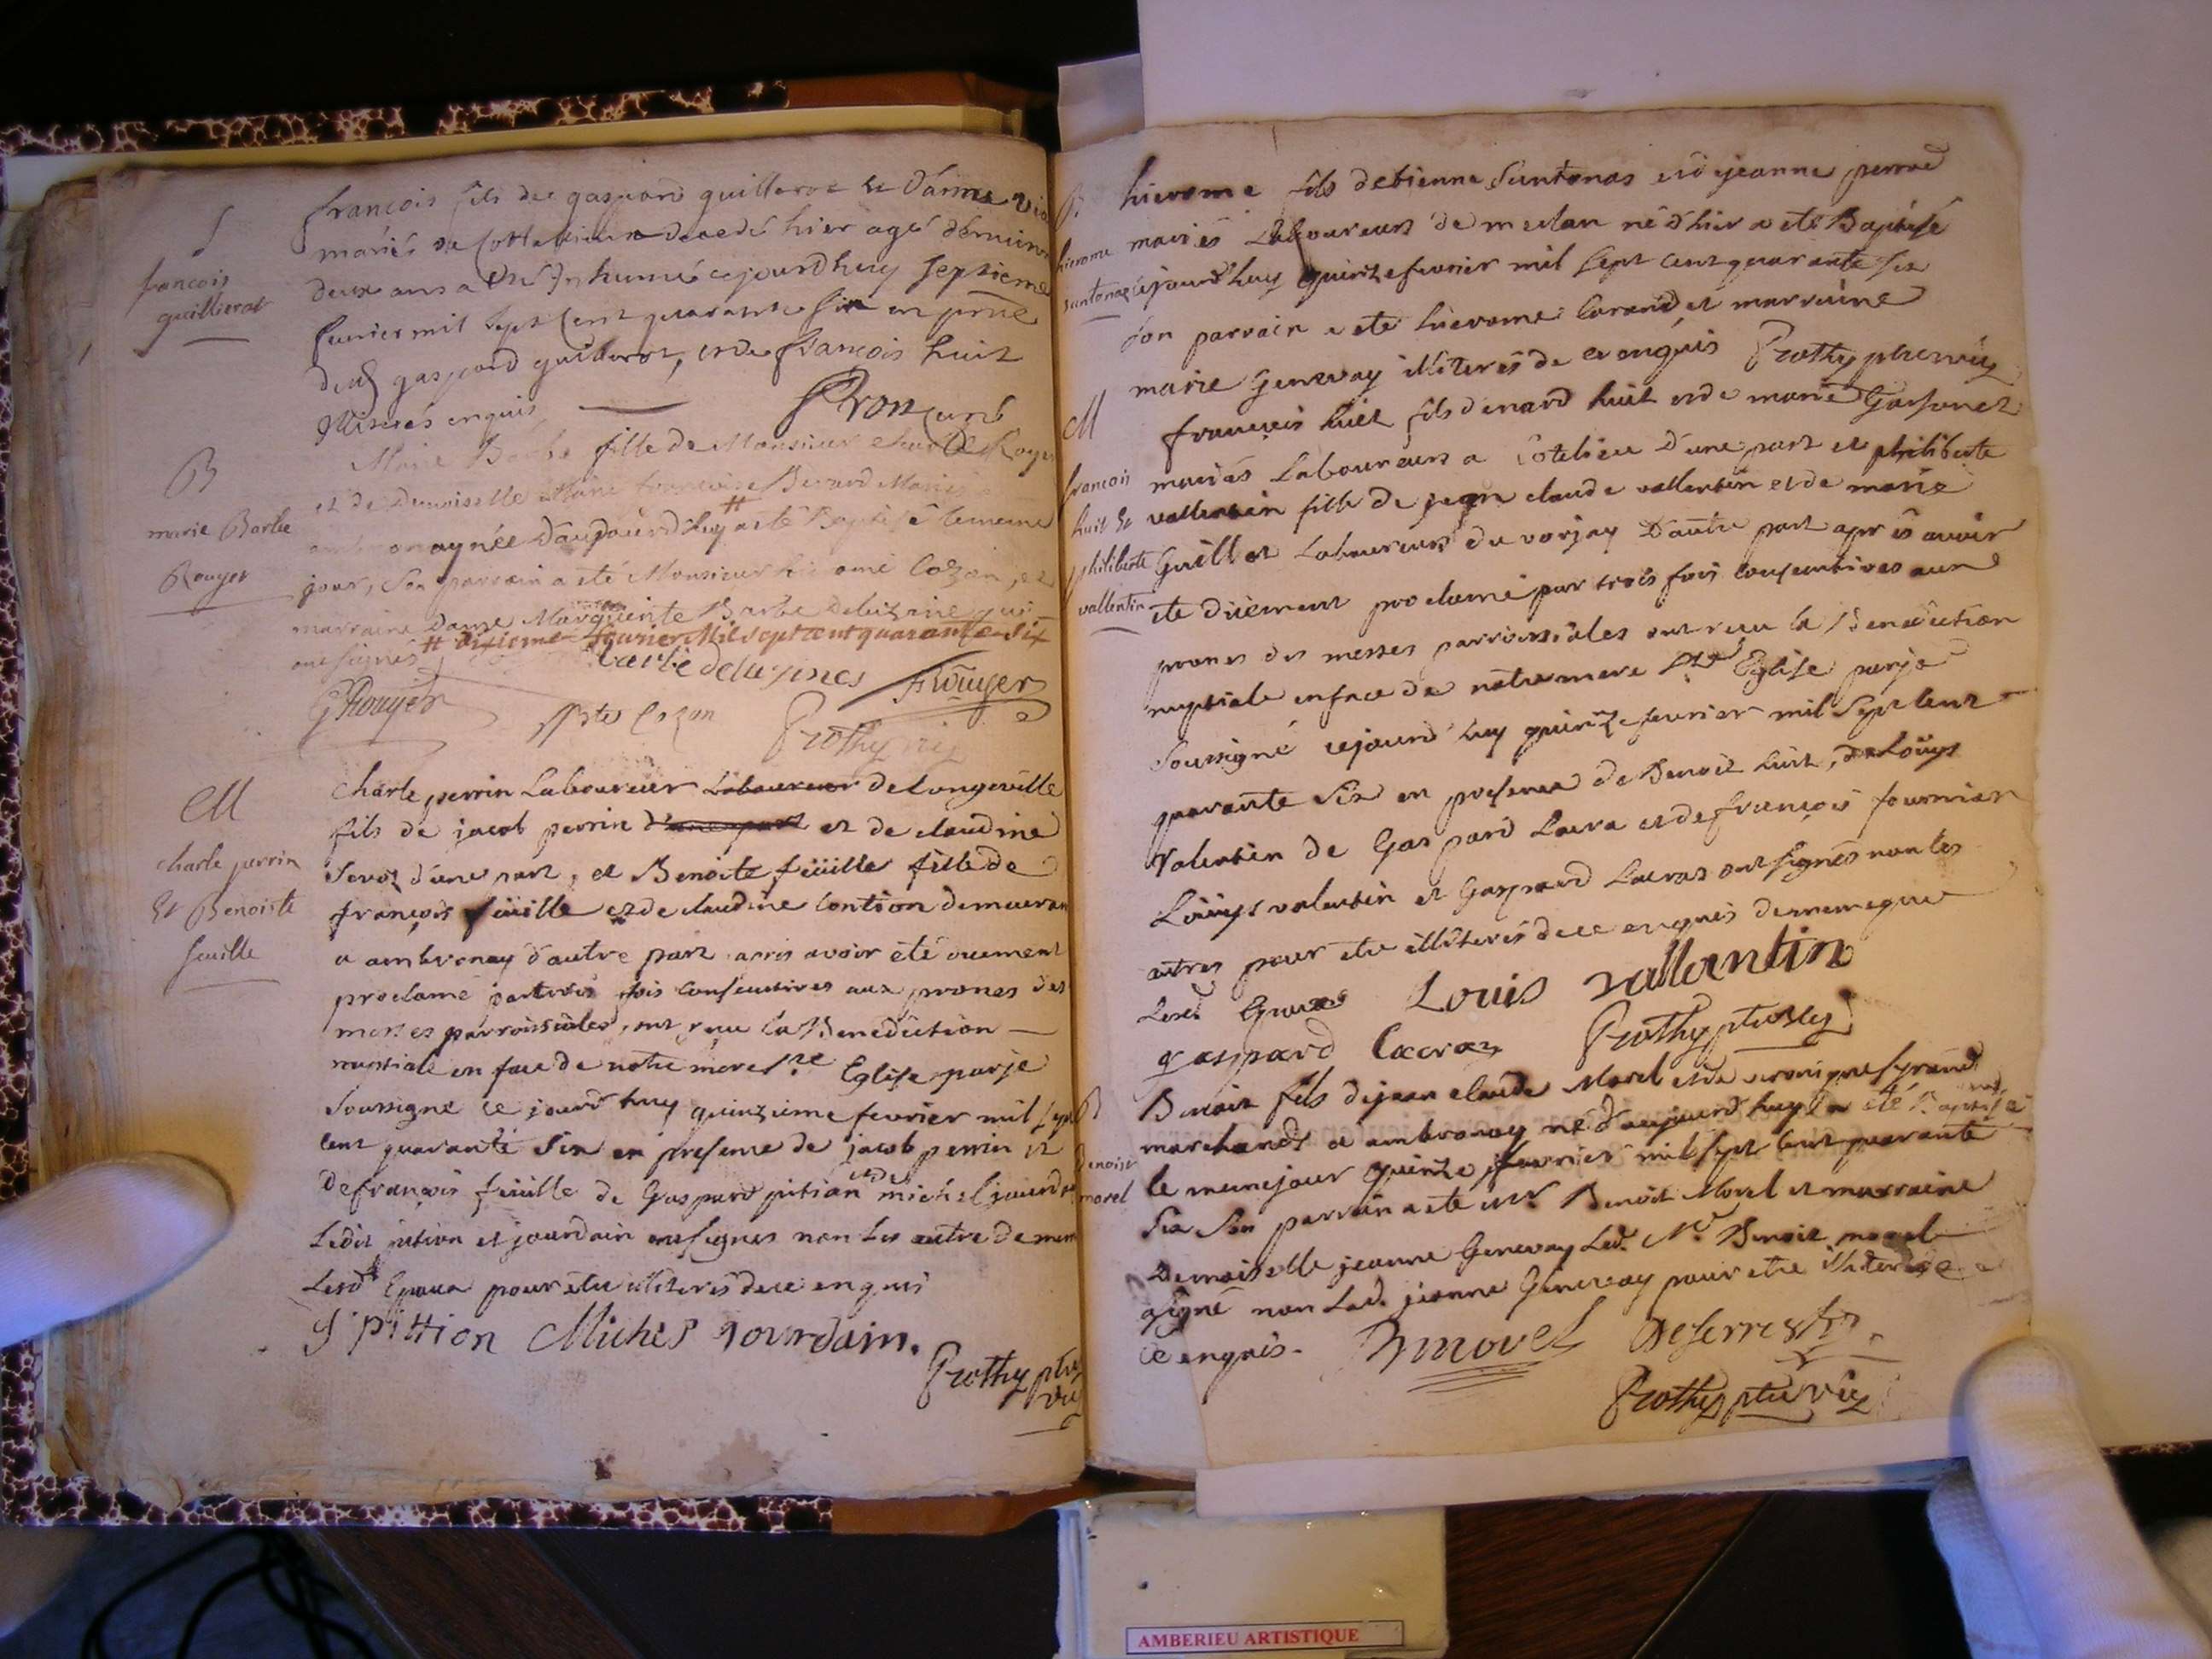 S
francois
guillierot
francois fils de gaspard guillerot et d'anne
mariés de Cottelieu decedé hier agé d'environ
deux ans a été Inhumé cejourdhuy septieme
fevrier mil sept Cent quarante six en pnce
dud gaspard guillerot, et de francois huit
illiterés enquis Bron curé
B
marie Barbe
Rouyer
Marie Barbe fille de Monsieur Charle Rouyer
et de Demoiselle Marie francoise Berard Mariés a
ambronay née d'aujourdhuy # a été Baptisé le meme
jour, son parrain a été Monsieur hierome Cozon, et
marraine Dame Marguerite Barbe Deluzines qui
ont signés # dixieme fevrier Mil sept cent quarante six
Barbe deluzines F Rouyer
G Rouyer Cozon
Prothy vic
M
charle perrin
Et Benoiste
feuille
Charle perrin Laboureur Laboureur de Longeville
fils de jacob perrin d'une part et de claudine
Sevoz d'une part, et Benoite feüille fille de
françois feüille et de claudine Contion demeurant
a ambronay d'autre part apris avoir été düement
proclamé par trois fois consecutives aux prones des
messes parroissiales, ont reçu la Benediction
nuptiale en face de notre mere Ste Eglise par je
Soussigné ce jourd'huy quinzieme fevrier mil sept
cent quarante Six en presence de jacob perrin et
de françois feüille de Gaspard pition et de michel jourdain
Ledit pition et jourdain ont signes non les autre de meme
Lesd. Epoux pour etre illiterés de ce enquis
J pittion Michel Jourdain.
Prothy ptre
vic
B
hierome
Suntonas
hierome fils d'etienne Suntonas et d jeanne perrod
mariés Laboureurs de merlan né d'hier a eté Baptisé
cejourd'huy quinze fevrier mil sept cent quarante six
son parrain a eté hierome Carand, et marraine
marie Genevay illiterés de ce enquis Prothy ptre vic
M
francois
huit Et
philiberte
vallentin
françois huit fils d'enard huit et de marie Garsonet
mariés Laboureurs a Cotelieu d'une part et philiberte
vallentin fille de jean claude vallentin et de marie
Guillot Laboureurs du vorjay D'autre part apris avoir
ete düement proclamé par trois fois consecutives aux
prones des messes parroissiales ont reçu la Benediction
nuptiale en face de notre mere Ste Eglise par je
Soussigné cejourd'huy quinze fevrier mil Sept Cent
quarante Six en presence de Benoit huit, de Loüys
Valentin de Gaspard Lacra et de françois fournier
Loüys valentin et Gaspard Lacras ont signés non les
autres pour etre illiterés de ce enquis de meme que
Lesd Epoux Louis vallantin
gaspard Cacraz Prothy ptre vic
B
Benoist
morel
Benoit fils de jean claude Morel et de veronique
marchands a ambronay né d'aujourd'huy a été Baptisé
le meme jour quinze fevrier mil sept Cent quarante
Six Son parrain a ete Mr. Benoit Morel et marraine
Demoiselle jeanne Genevay Led. Mr Benoit morel
a signé non Lad. jeanne Genevay pour etre illiterée
de enquis. B morel Deserres
Prothy ptre vic
AMBERIEU ARTISTIQUE